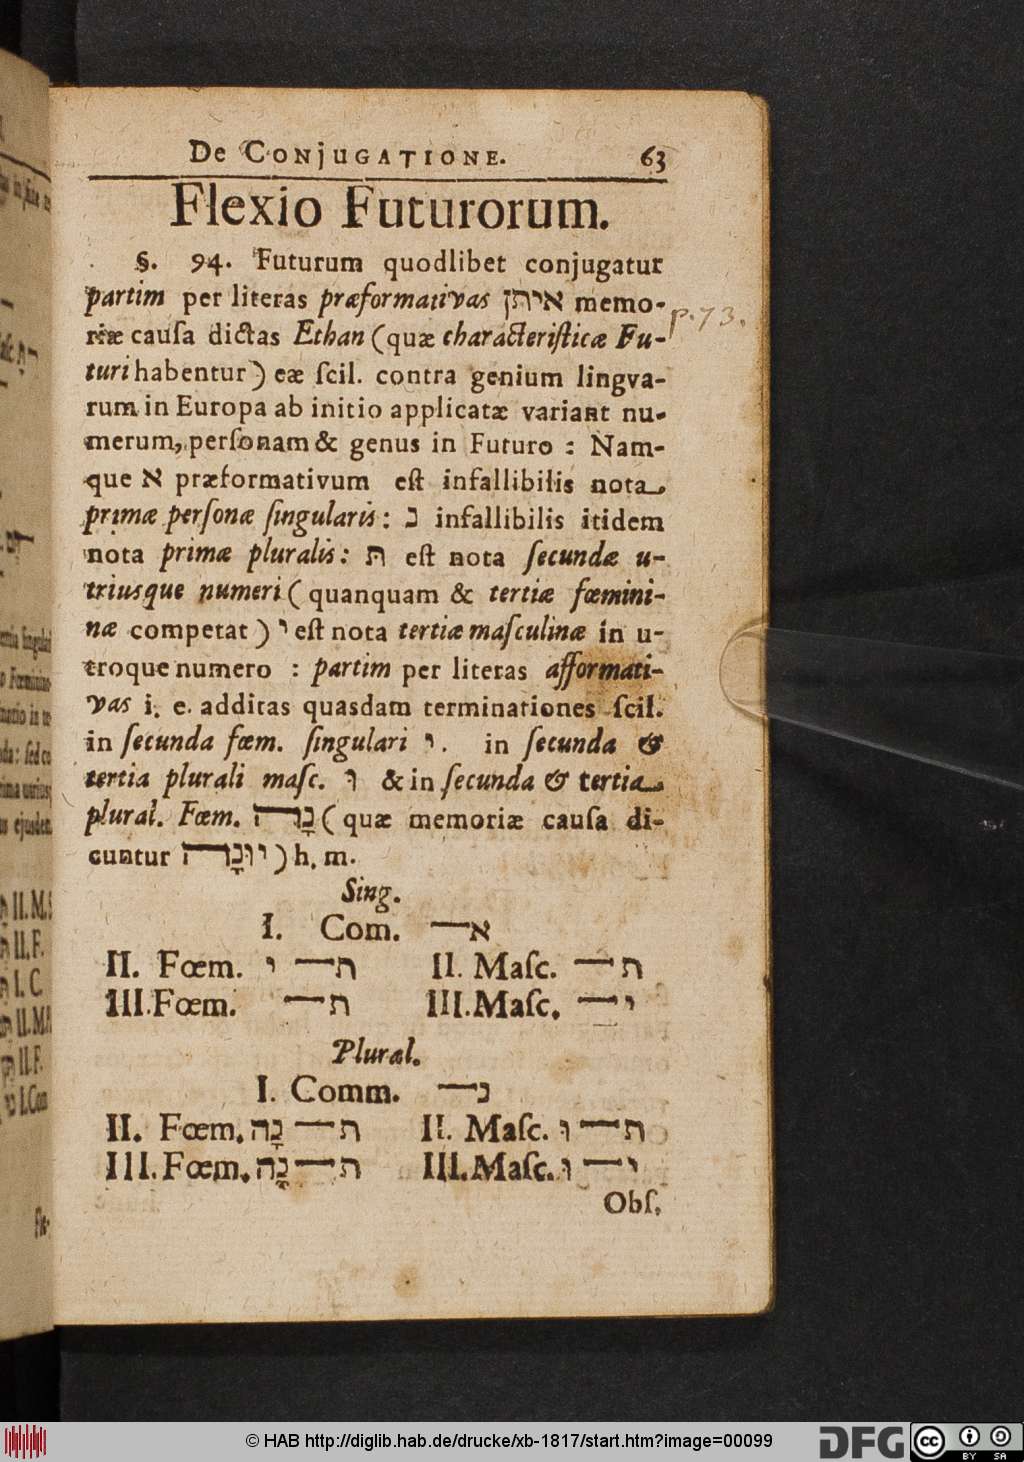 De Conjugatione. 63
Flexio Futurorum.
§. 94. Futurum quodlibet conjugatur
partim per literas præformativas איתן memo-
riæ cauſa dictas Ethan (quæ characteriſticæ Fu-
p. 73.
turi habentur) eæ ſcil. contra genium lingva-
rum in Europa ab initio applicatæ variant nu-
merum, perſonam & genus in Futuro : Nam-
que א præformativum eſt infallibilis nota
primæ perſonæ ſingularis: נ infallibilis itidem
nota primæ pluralis: תּ eſt nota ſecundæ u-
triusque numeri (quanquam & tertiæ fœmini-
næ competat) י eſt nota tertiæ maſculinæ in u-
troque numero : partim per literas afformati-
vas i. e. additas quasdam terminationes ſcil.
in ſecunda fœm. ſingulari י. in ſecunda &
tertia plurali maſc. וּ & in ſecunda & tertia
plural. Fœm. נָה (quæ memoriæ cauſa di-
cuntur יוּנָה) h. m.
Sing.
I. Com. א—
II. Fœm. ת—י II. Maſc. ת—
III. Fœm. ת— III. Maſc. י—
Plural.
I. Comm. נ—
II. Fœm. ת—נָה II. Maſc. ת—וּ
III. Fœm. ת—נָה III. Maſc. י—וּ
Obſ.
II. M.
II. F.
I. C.
II. M.
II. F.
I. Com
© HAB http://diglib.hab.de/drucke/xb-1817/start.htm?image=00099
DFG
cc
BY SA